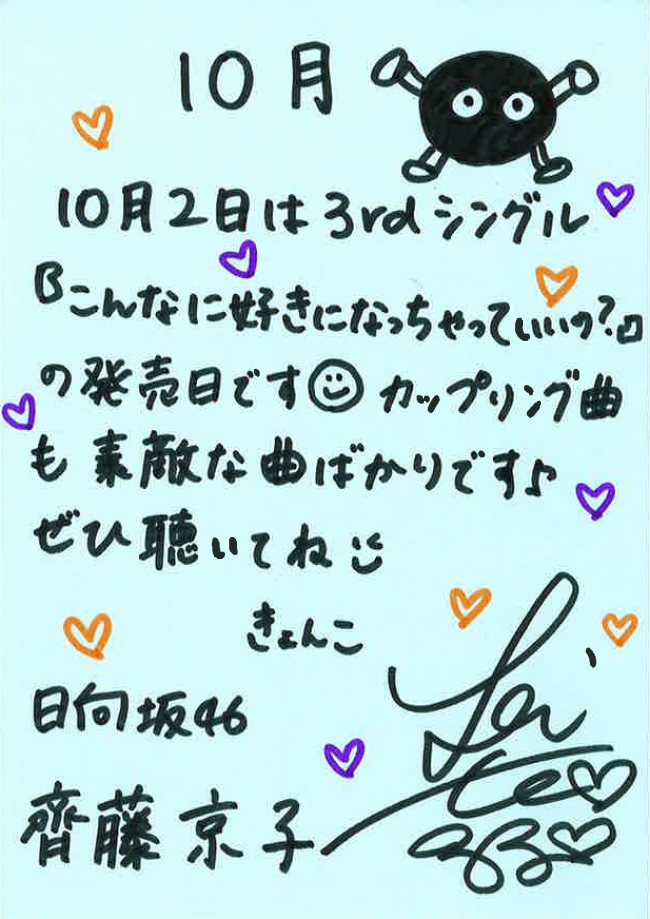 10月
10月2日は3rdシングル
『こんなに好きになっちゃっていいの?』
の発売日です カップリング曲
も素敵な曲ばかりです♪
ぜひ聴いてね
きょんこ
日向坂46
齊藤京子